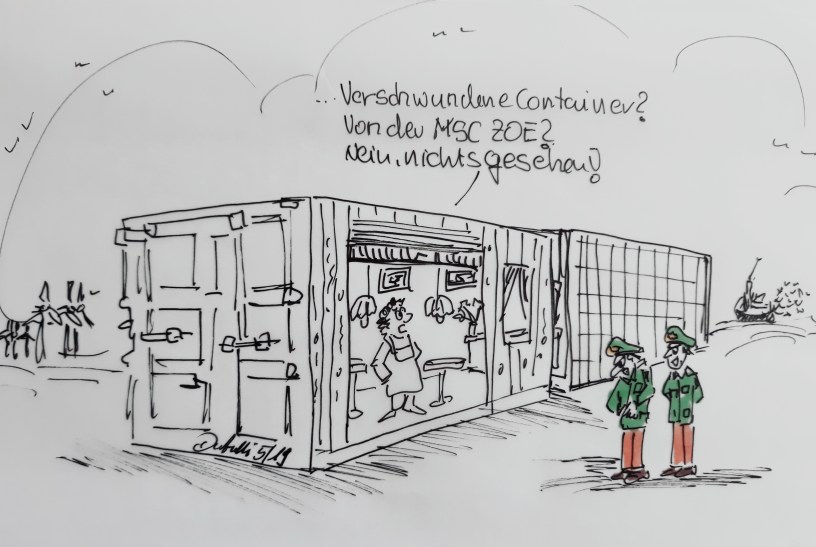 ... Verschwundene Container?
Von der MSC ZOE?
Nein, nichts gesehen!
5/19